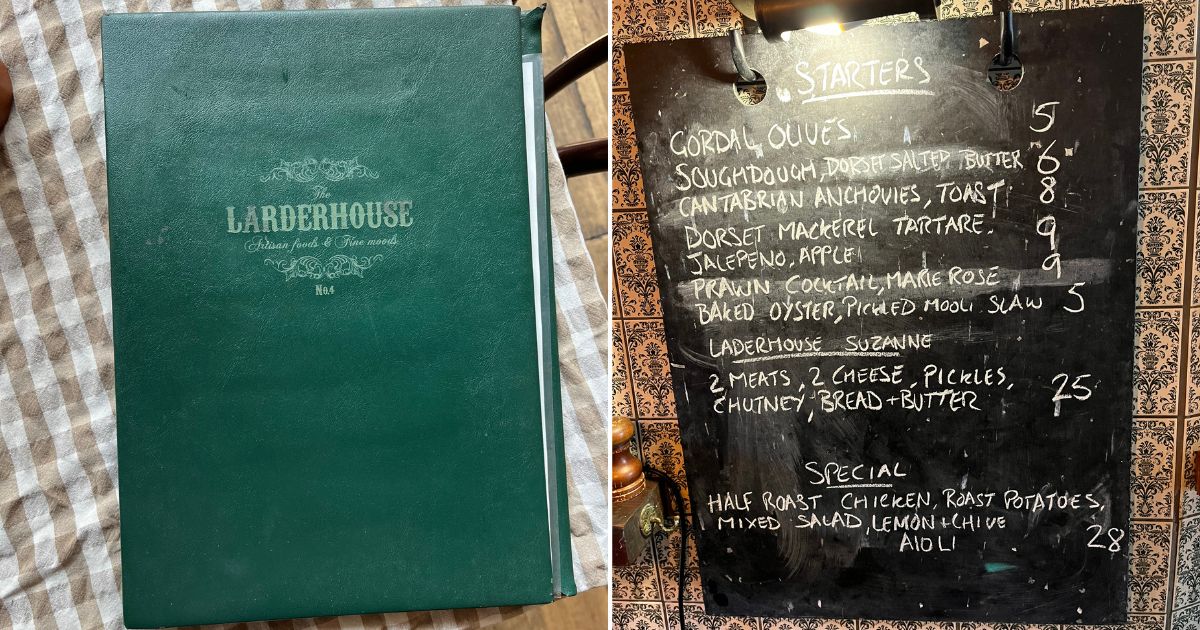 The
LARDERHOUSE
Artisan foods & Fine moods
No.4
STARTERS
GORDAL OLIVES 5
SOUGHDOUGH, DORSET SALTED BUTTER 6
CANTABRIAN ANCHOVIES, TOAST 8
DORSET MACKEREL TARTARE. 9
JALEPENO, APPLE
PRAWN COCKTAIL, MARIE ROSE 9
BAKED OYSTER, PICKLED MOOLI SLAW 5
LADERHOUSE SUZANNE
2 MEATS, 2 CHEESE, PICKLES,
CHUTNEY, BREAD + BUTTER 25
SPECIAL
HALF ROAST CHICKEN, ROAST POTATOES,
MIXED SALAD, LEMON + CHIVE
AIOLI 28